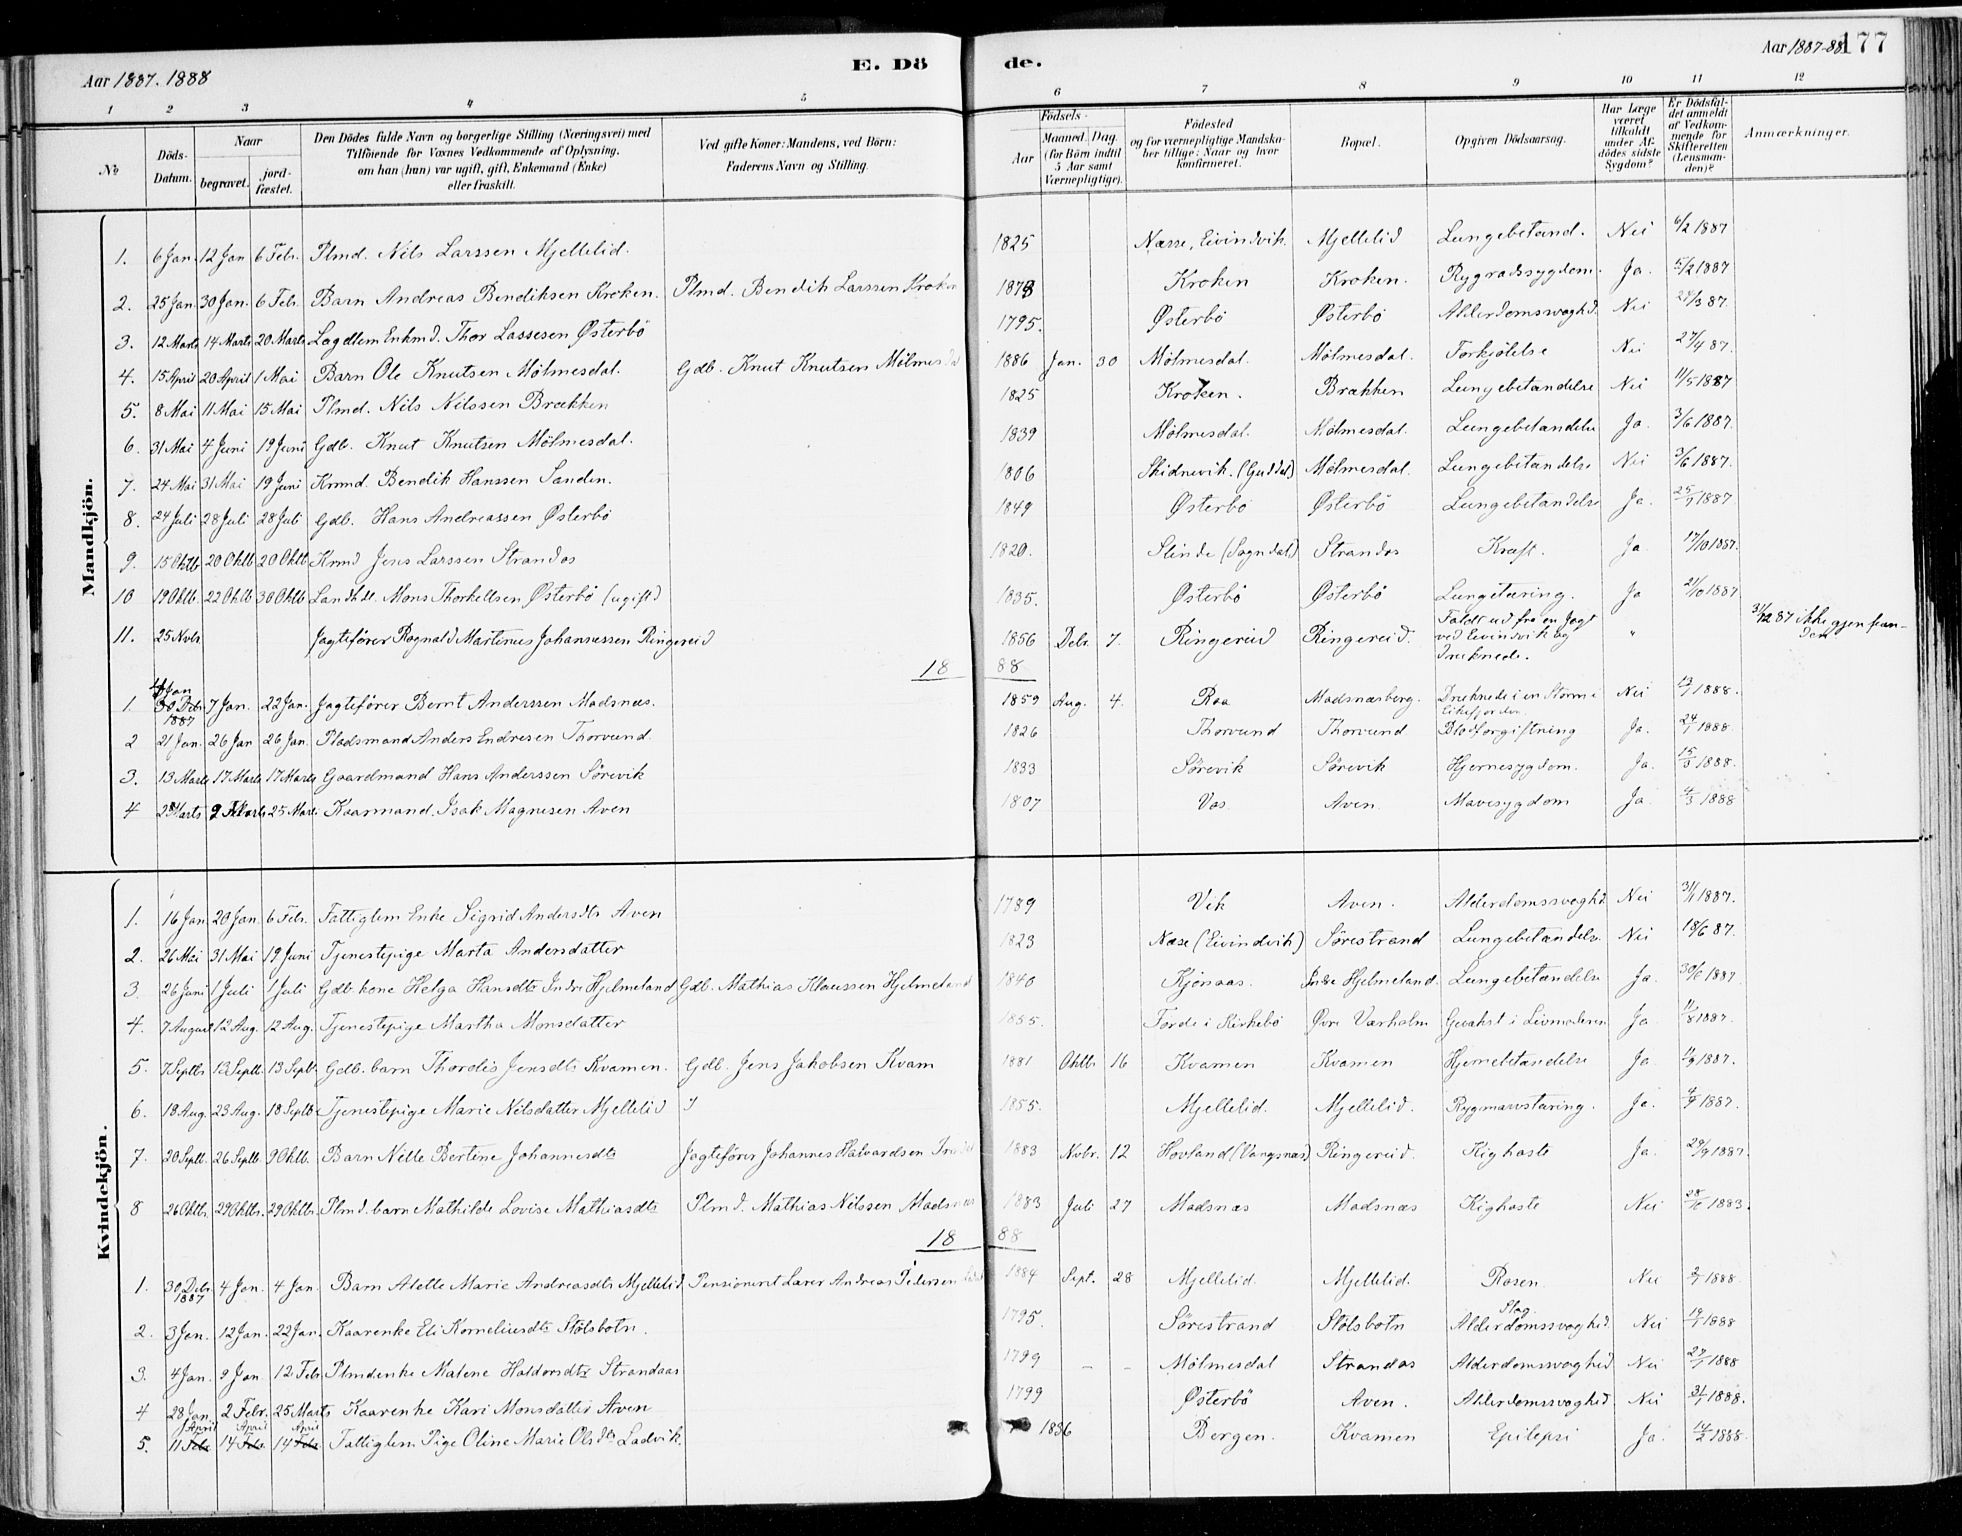 Aar 1887. 1888 E. Dö de. Aar 1887-88 177
1 2 3 4 5 6 7 8 9 10 11 12
No Döds-Datum. Naar begravet. jord-fæstet. Den Dödes fulde Navn og borgerlige Stilling (Næringsvei) med Tilföiende for Voxnes Vedkommende af Oplysning, om han (hun) var ugift, gift, Enkemand (Enke) eller fraskilt. Ved gifte Koner: Mandens, ved Börn: Faderens Navn og Stilling. Födsels- Aar Maaned. Dag. (for Börn indtil 5 Aar samt Værnepligtige). Födested og for værnepligtige Mandskaber tillige: Naar og hvor konfirmeret. Bopæl. Opgiven Dödsaarsag. Har Læge været tilkaldt under Afdödes sidste Sygdom? Er Dödsfaldet anmeldt af Vedkommende for Skifteretten (Lensmanden)? Anmærkninger.
Mandkjön.
1. 6 Jan. 12 Jan 6 Febr. Plmd. Nils Larssen Mjellelid. 1825 Næsse, Eivindvik. Mjellelid Lungebetænd. Nei 6/2 1887
2. 25 Jan. 30 Jan. 6 Feb. Barn Andreas Bendiksen Kroken. Plmd. Bendik Larssen Kroken 1878 Kroken Kroken. Rygradssygdom. Ja. 5/2 1887
3. 12 Marts 14 Marts 20 Marts Lægdlem Enkmd. Thor Lassesen Østerbö 1795. Østerbö Østerbö Alderdomssvaghd. Nei 24/3 87.
4. 15 April 20 April 1 Mai Barn Ole Knutsen Mölmesdal. Gdb. Knut Knutsen Mölmesdal 1886 Jan. 30 Mölmesdal. Mölmesdal. Forkjölelse Nei 27/4 87.
5. 8 Mai 11 Mai 15 Mai Plmd. Nils Nilssen Brækken 1825 Kroken. Brækken Lungebetændelse Nei 11/5 1887
6. 31 Mai 4 Juni 19 Juni Gdb. Knut Knutsen Mölmesdal. 1839 Mölmesdal. Mölmesdal. Lungebetændelse Ja. 3/6 1887.
7. 24 Mai 31 Mai 19 Juni Krmd. Bendik Hanssen Sanden. 1806 Skidnevik. (Guddal) Mölmesdal. Lungebetændelse Nei 3/6 1887.
8. 24 Juli 28 Juli 28 Juli Gdb. Hans Andreassen Østerbö 1849 Østerbö Østerbö Lungebetændelse Ja. 25/7 1887
9. 15 Oktb 20 Oktb 20 Oktb Krmd Jens Larssen Strandos 1820. Slinde (Sogndal) Strandos Kræft. Ja. 17/10 1887.
10 19 Oktb. 22 Oktb 30 Oktb Landhdl. Mons Thorkellsen Østerbö (ugift) 1835. Østerbö Østerbö Lungetæring. Ja 21/10 1887
11. 25 Nvbr Jagtefører Rognald Martinus Johannessen Ringereid 1856 Debr. 7. Ringereid Ringereid. Faldt ud fra en Jagt ved Eivindvik og Druknede. " 31/12 87 ikke gjenfunden
18 88
1. 30 Debr. 1887 7 Jan. 22 Jan. Jagtefører Bernt Anderssen Madsnæs. 1859 Aug. 4. Raa Madsnæsberg. Druknede i en Storm i Eikefjorden. Nei 13/1 1888.
2 21 Jan. 26 Jan 26 Jan. Pladsmand Anders Endresen Thorvund. 1826 Thorvund Thorvund Blodforgiftning Ja. 24/1 1888.
3. 13 Marts 17 Marts 17 Marts Gaardmand Hans Anderssen Sörevik 1833 Sörevik Sörevik Hjernesygdom. Ja. 15/3 1888.
4 2 Marts 9 Marts 25 Marts Kaarmand. Isak Magnesen Aven 1807 Vos. Aven. Mavesygdom Ja. 4/3 1888
Kvindekjön.
1. 16 Jan. 20 Jan. 6 Feb. Fattiglem Enke Sigrid Andersdtr Aven 1789 Vik Aven. Alderdomssvaghd Nei 31/1 1887.
2. 26 Mai 31 Mai 19 Juni Tjenestepige Marta Andersdatter 1823 Næse (Eivindvik) Sörestrand Lungebetændelse. Nei 18/6 87.
3. 26 Juni 1 Juli 1 Juli Gdb. kone Helga Hansdtr Indre Hjelmeland Gdb. Mathias Klaussen Hjelmeland 1840 Kjönaas. Indre Hjelmeland. Lungebetændelse Ja. 30/6 1887.
4. 7 August 12 Aug. 12 Aug. Tjenestepige Martha Monsdatter 1855. Förde i Kirkebö Øvre Varholm Gevækst i Livmoderen Ja. 11/8 1887.
5. 7 Septb. 13 Septb. 13 Septb. Gdb. barn Thordis Jensdtr Kvamen. Gdb. Jens Jakobsen Kvam 1881 Oktbr 16 Kvamen Kvamen Hjernebetændelse Ja. 11/9 1887.
6. 18 Aug. 23 Aug. 18 Septb Tjenestepige Marie Nilsdatter Mjellelid 1855. Mjellelid. Mjellelid. Rygmarvstæring. Ja. 4/9 1887.
7. 20 Septb. 26 Septb. 9 Oktb. Barn Nelle Bertine Johannesdtr Jagtefører Johannes Halvardsen 1883 Nvbr. 12 Hovland (Vangsnæs) Ringereid. Kighoste Ja. 29/9 1887.
8 26 Oktbr. 29 Oktbr. 29 Oktbr. Plmd. barn Mathilde Lovise Mathiasdtr Plmd. Mathias Nilssen Madsnæs 1883 Juli 27 Madsnæs Madsnæs Kighoste Nei 28/10 1883.
18 88
1. 30 Debr. 1887 4 Jan. 4 Jan. Barn Alette Marie Andreasdtr Mjellelid. Pensioneret Lærer Andreas Pedersen 1884 Sept. 28 Mjellelid. Mjellelid. Rosen. Nei 2/1 1888.
2. 3 Jan. 12 Jan. 22 Jan. Kaarenke Eli Korneliusdtr Stölsbotn. 1795. Sörestrand Stölsbotn Slag. Alderdomssvaghed. Nei 19/1 1888
3. 4 Jan. 9 Jan. 12 Febr Plmdenke Malene Haldorsdtr Strandaas 1799 - - Mölmesdal Strandos Alderdomssvaghed. Nei 27/1 1888
4 28 Jan. 2 Febr. 25 Marts Kaarenke Kari Monsdatter Aven 1799 Østerbö Aven. Alderdomssvaghed. Nei 31/1 1888.
5. 11 April 14 April 14 April Fattiglem Pige Oline Marie Olsdtr Ladvik. 1836 Bergen. Kvamen Epilepsi Ja. 14/2 1888.